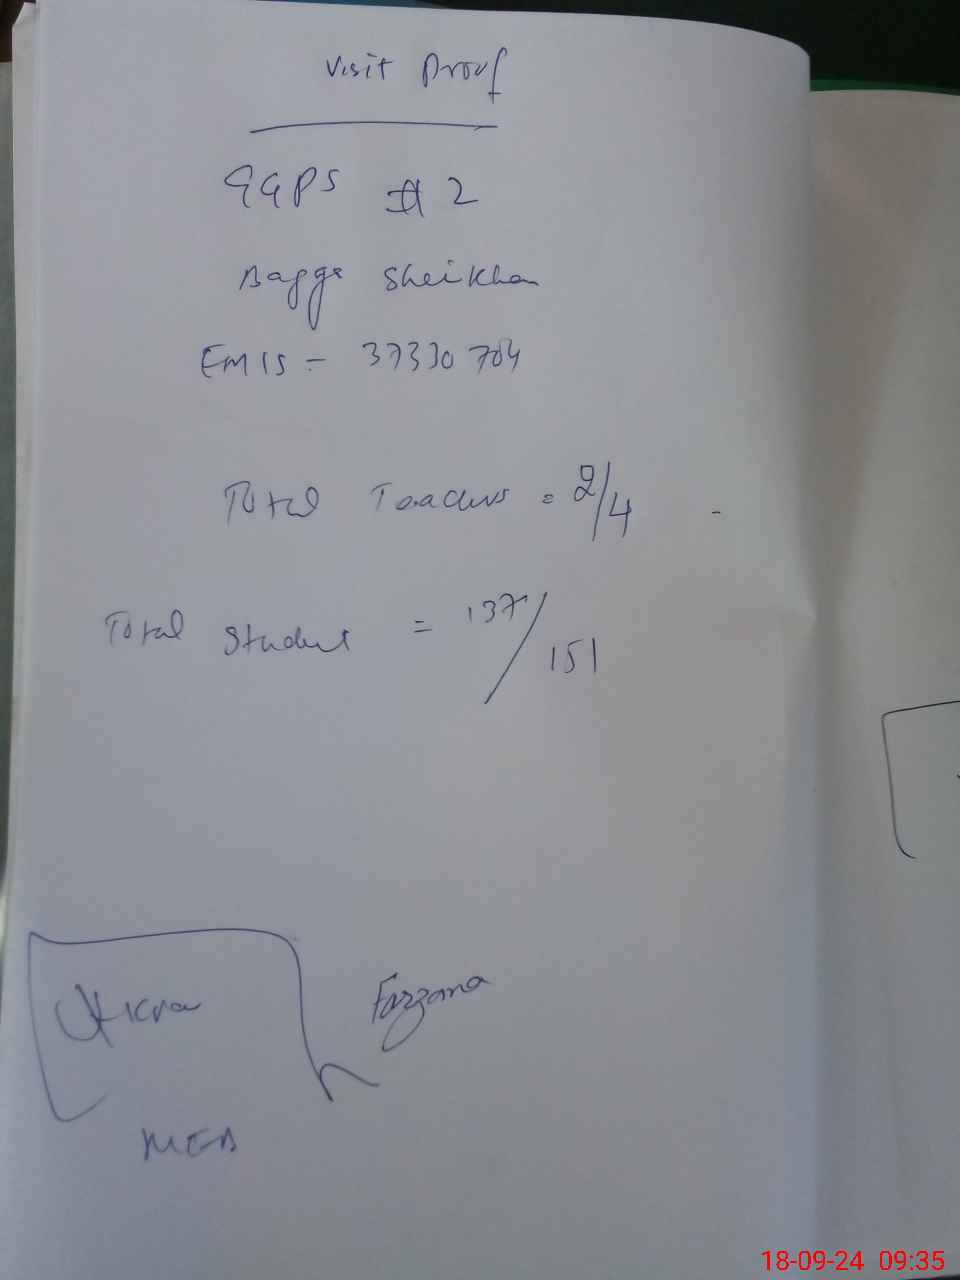 Visit Proof
GGPS # 2
Bagga Sheikhan
EMIS = 37330704
Total Teachers = 2/4
Total Student = 137/151
Farzana
MEA
18-09-24 09:35